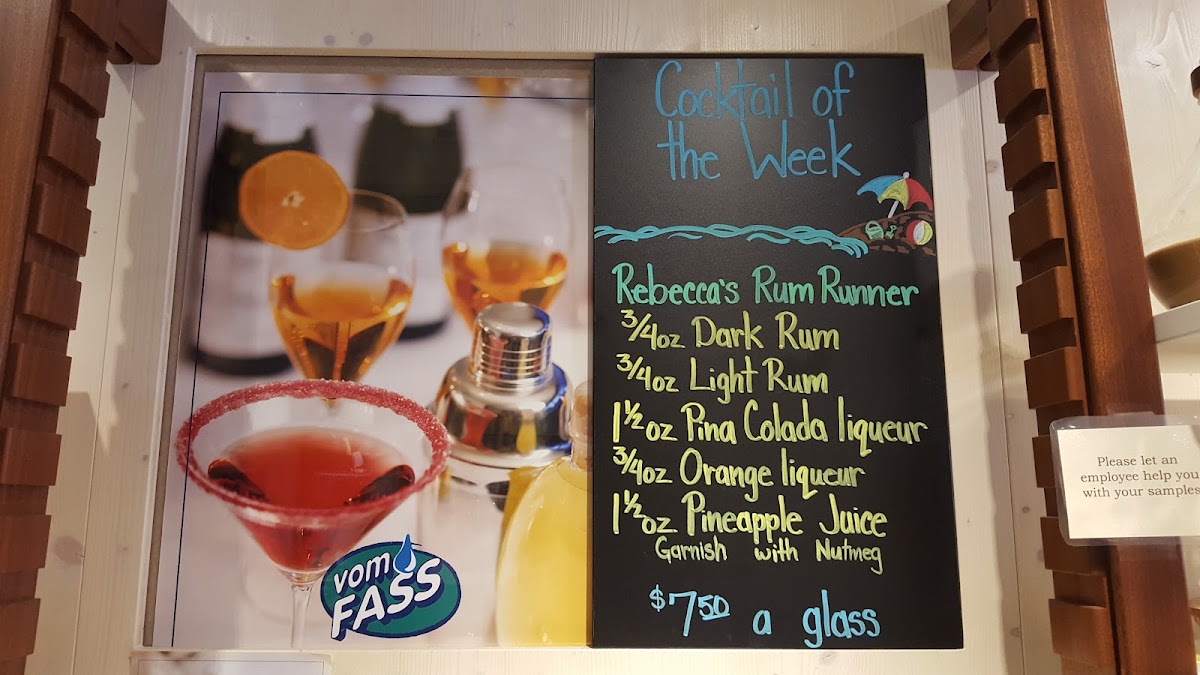 Cocktail of
the Week
Rebecca's Rum Runner
3/4oz Dark Rum
3/4oz Light Rum
1 1/2oz Pina Colada liqueur
3/4oz Orange liqueur
1 1/2oz Pineapple Juice
Garnish with Nutmeg
$7.50 a glass
vom
FASS
Please let an
employee help you
with your samples